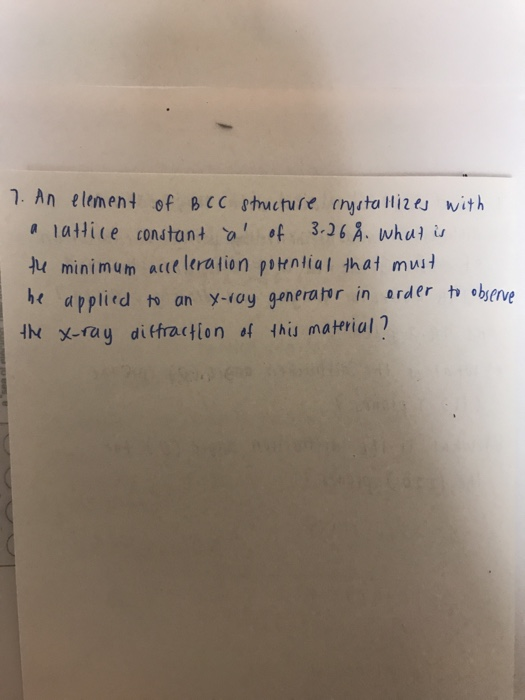 7. An element of BCC structure crystallizes with
a lattice constant 'a' of 3.26 Å. What is
the minimum acceleration potential that must
be applied to an x-ray generator in order to observe
the x-ray diffraction of this material?